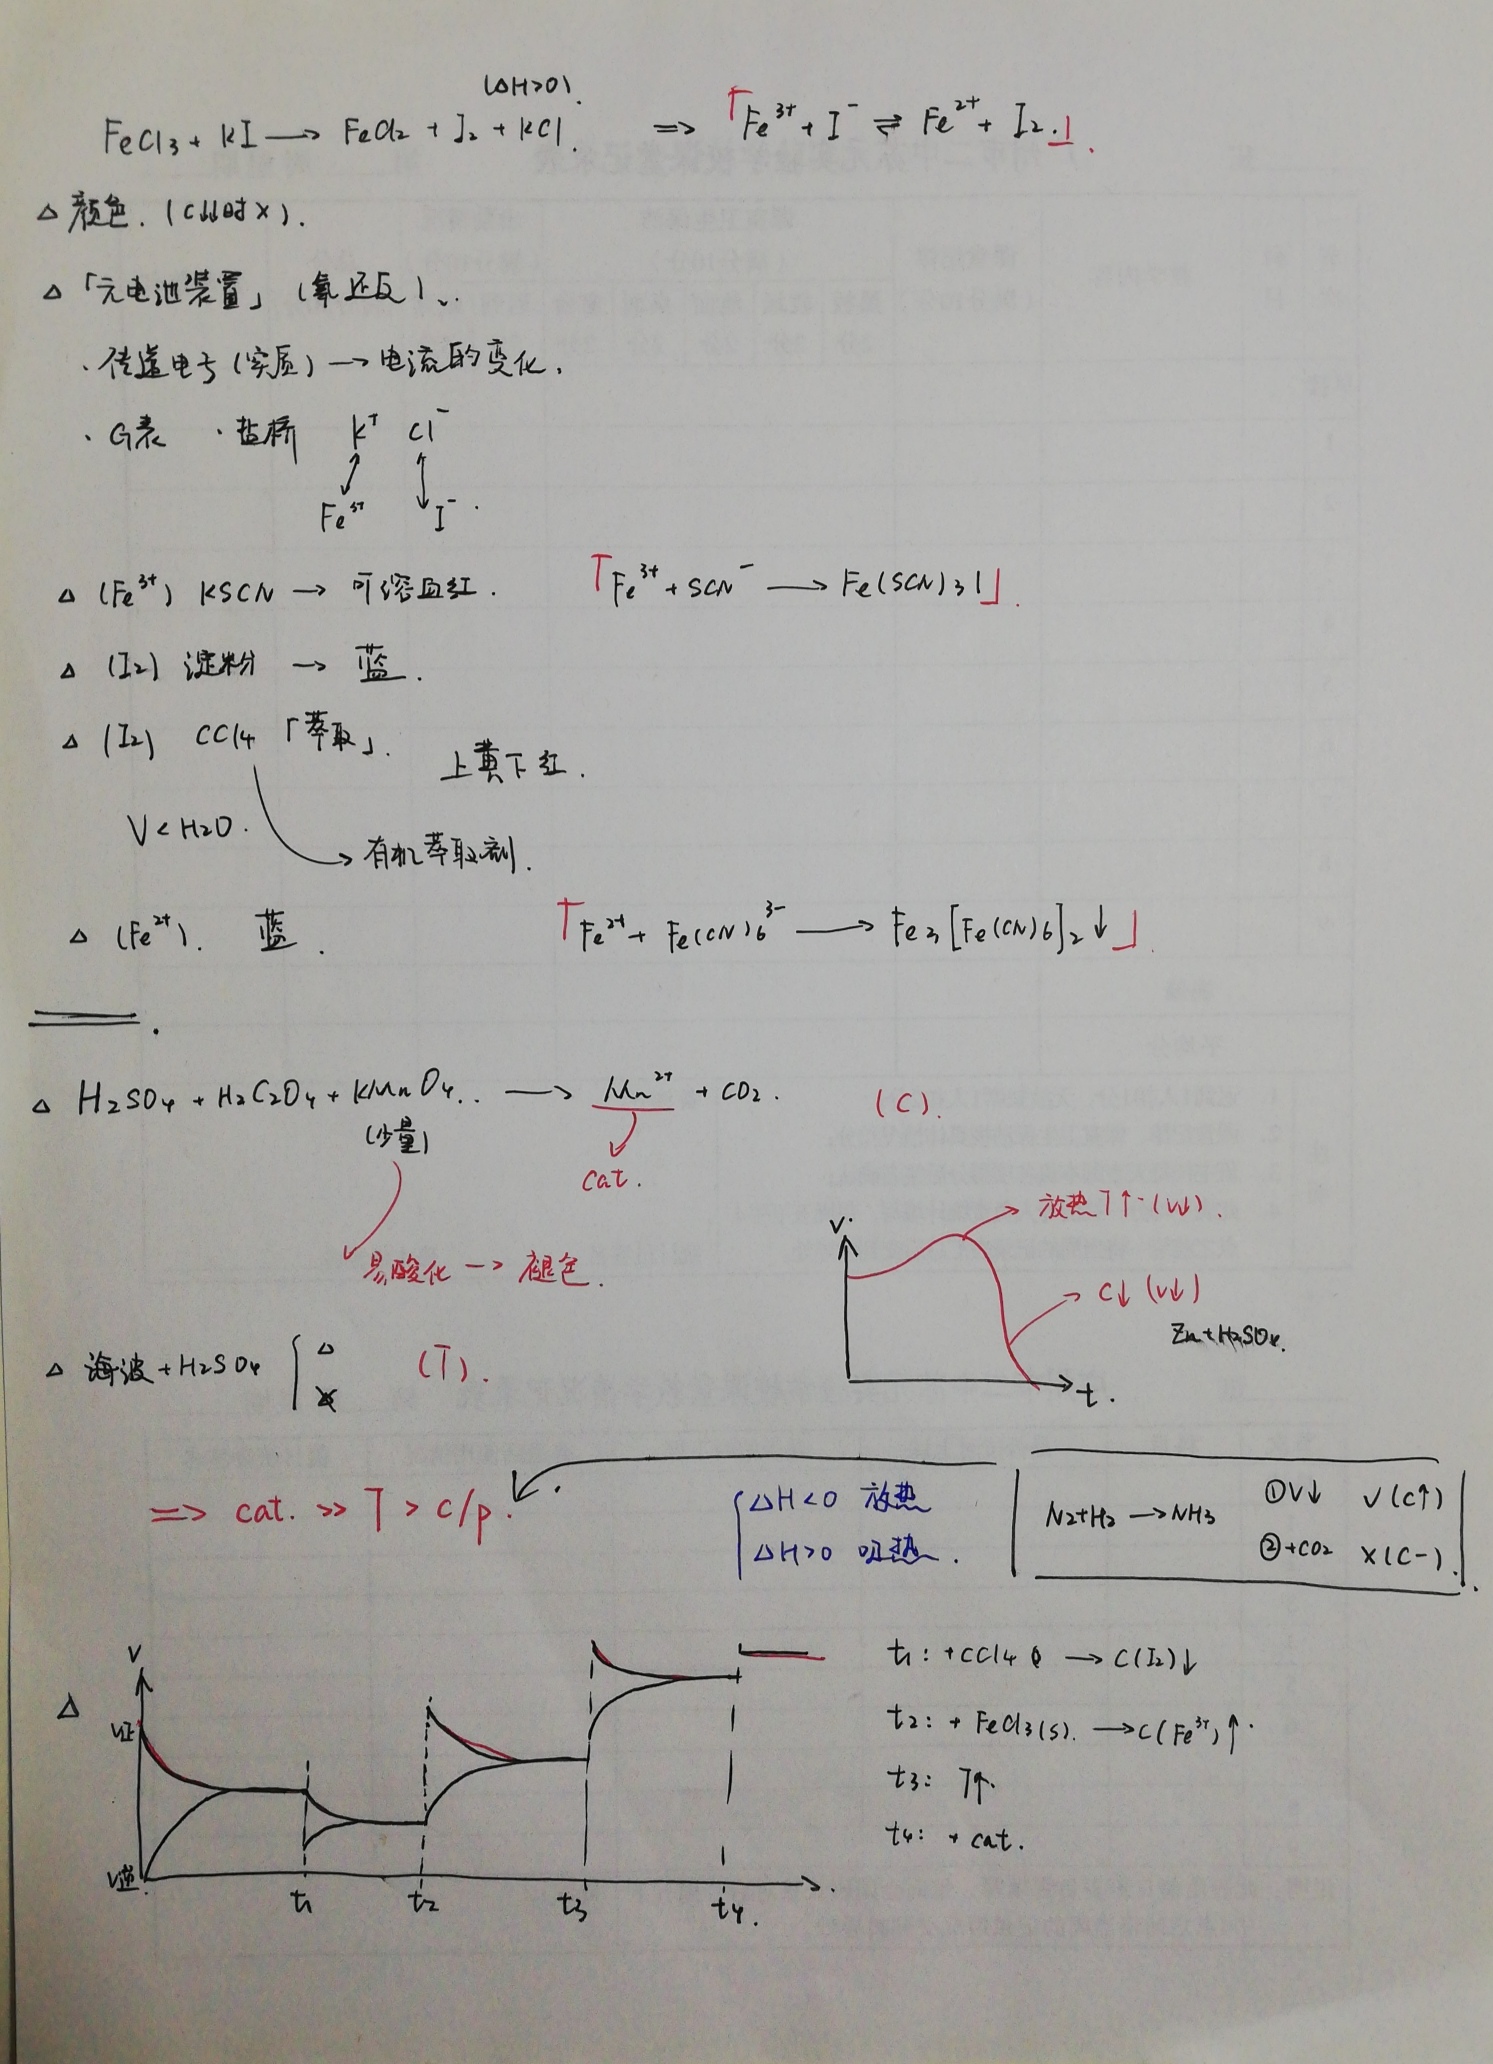 (ΔH>0).
FeCl3 + KI → FeCl2 + I2 + KCl. ⇒ 「Fe³⁺ + I⁻ ⇌ Fe²⁺ + I2.」.
△ 颜色. (C↓↓时×).
△ 「元电池装置」 (氧还反)、.
· 传递电子(实质) → 电流的变化.
· G表 · 盐桥 K⁺ Cl⁻
Fe³⁺ I⁻.
△ (Fe³⁺) KSCN → 可溶血红. 「Fe³⁺ + SCN⁻ → Fe(SCN)3」.
△ (I2) 淀粉 → 蓝.
△ (I2) CCl4 「萃取」. 上黄下红.
V < H2O. → 有机萃取剂.
△ (Fe²⁺). 蓝. 「Fe²⁺ + Fe(CN)6³⁻ → Fe3[Fe(CN)6]2↓」.
△ H2SO4 + H2C2O4 + KMnO4.. → Mn²⁺ + CO2. (C).
(少量)
cat.
易酸化 → 褪色.
V. → 放热T↑·(V↓).
→ C↓ (V↓)
Zn+H2SO4.
t.
△ 海波 + H2SO4 { △ (T).
⇒ cat. >> T > c/p.
ΔH<0 放热
ΔH>0 吸热.
N2+H2 → NH3 ①V↓ √(C↑)
②+CO2 ×(C-).
△ V
V正
V逆.
t1 t2 t3 t4.
t1: +CCl4 → C(I2)↓
t2: + FeCl3(s). → C(Fe³⁺)↑.
t3: T↑.
t4: + cat.